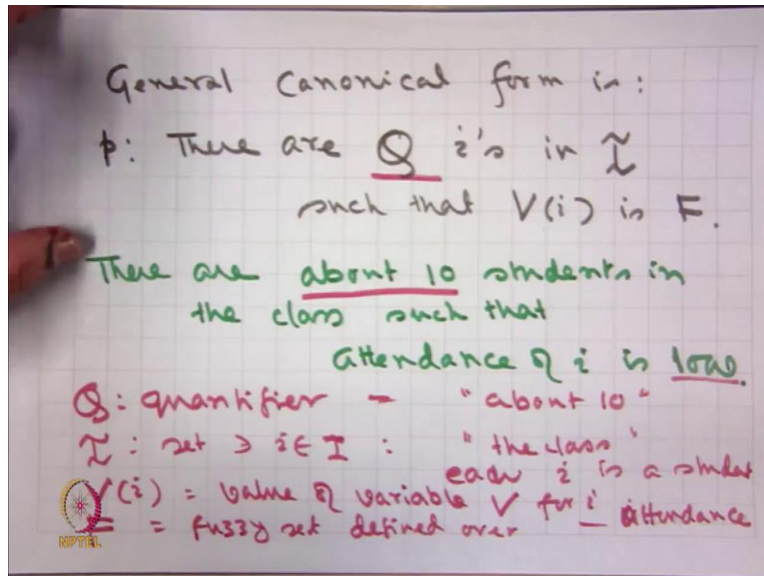 General Canonical form is:
p: There are Q i's in I
such that V(i) is F.
There are about 10 students in
the class such that
attendance of i is low.
Q: quantifier - "about 10"
I: set ∋ i ∈ I : "the class"
each i is a student
V(i) = value of variable V for i attendance
= fuzzy set defined over
NPTEL